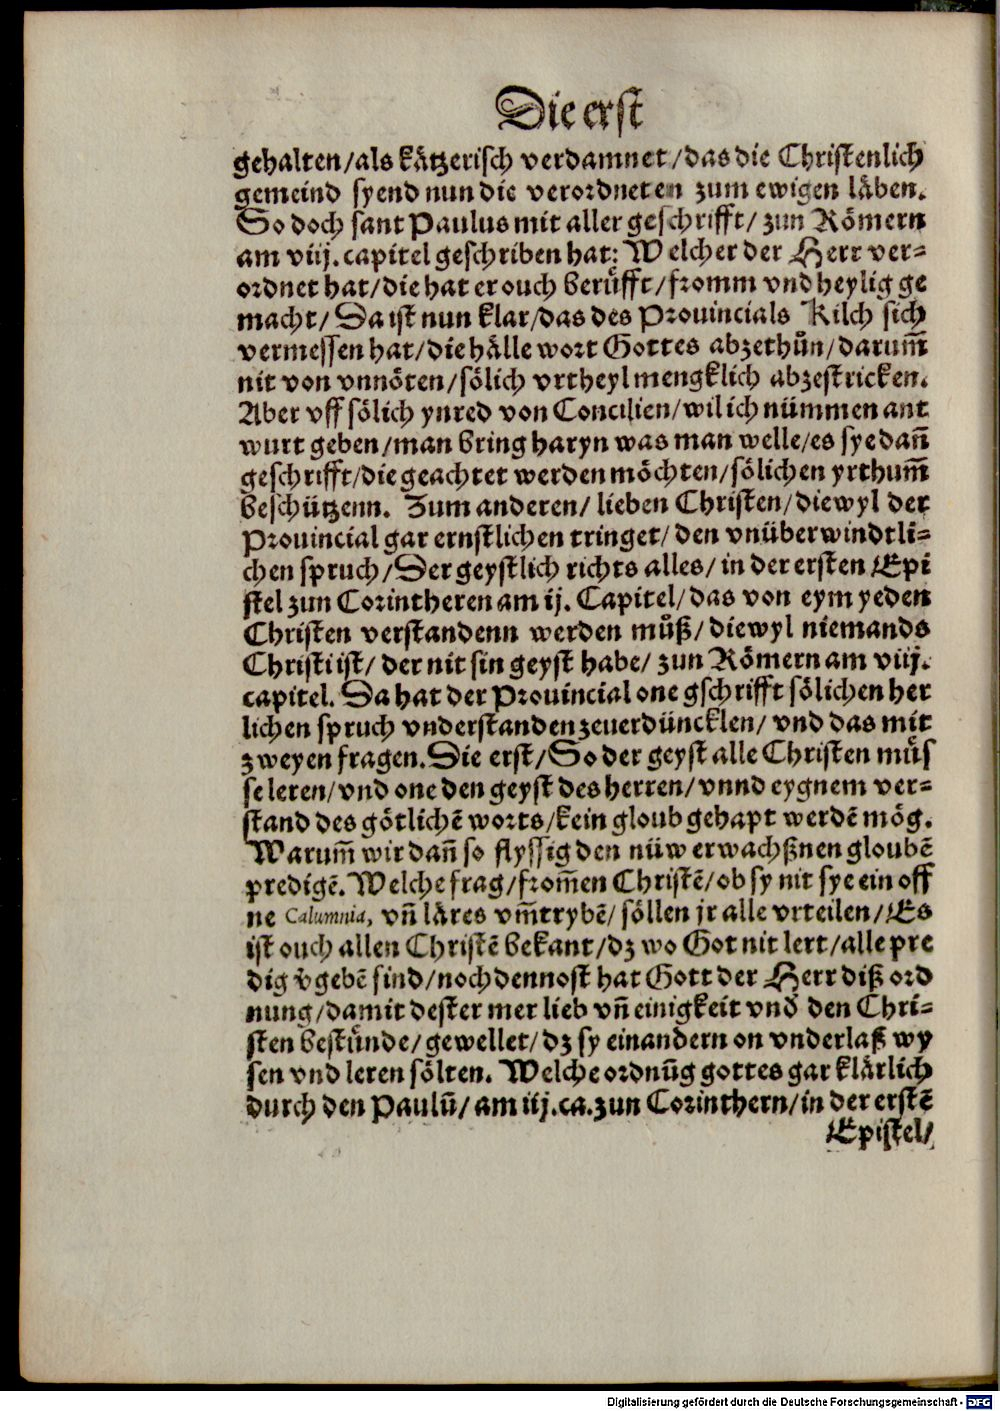 Die erst
gehalten/als kätzerisch verdamnet/das die Christenlich
gemeind syend nun die verordneten zum ewigen läben.
So doch sant Paulus mit aller geschrifft/ zun Römern
am viij. capitel geschriben hat: Welcher der Herr ver-
ordnet hat/die hat er ouch berüfft/fromm vnd heylig ge
macht/ Da ist nun klar/das des Prouincials Kilch sich
vermessen hat/die hälle wort Gottes abzethůn/darum̄
nit von vnnöten/sölich vrtheyl mengklich abzestricken.
Aber vff sölich ynred von Concilien/wil ich nümmen ant
wurt geben/man bring haryn was man welle/es sye dañ
geschrifft/die geachtet werden möchten/sölichen yrthum̄
beschützenn. Zum anderen/ lieben Christen/diewyl der
Prouincial gar ernstlichen tringet/den vnüberwindtli-
chen spruch/Der geystlich richts alles/in der ersten Epi
stel zun Corintheren am ij. Capitel/das von eym yeden
Christen verstandenn werden můß/diewyl niemands
Christi ist/ der nit sin geyst habe/ zun Römern am viij.
capitel. Da hat der Prouincial one gschrifft sölichen her
lichen spruch vnderstanden zeuerdüncklen/ vnd das mit
zweyen fragen. Die erst/So der geyst alle Christen müs
se leren/vnd one den geyst des herren/vnnd eygnem ver-
stand des götlichē worts/kein gloub gehapt werdē mög.
Warum̄ wir dañ so flyssig den nüw erwachßnen gloubē
predigē. Welche frag/from̄en Christē/ob sy nit sye ein off
ne Calumnia, vñ läres vm̄trybē/ söllen jr alle vrteilen/Es
ist ouch allen Christē bekant/dz wo Got nit lert/alle pre
dig v̄gebē sind/noch dennost hat Gott der Herr diß ord
nung/damit dester mer lieb vñ einigkeit vnd̄ den Chri-
sten bestünde/gewellet/dz sy einandern on vnderlaß wy
sen vnd leren sölten. Welche ordnūg gottes gar klärlich
durch den Paulū/am iij.ca.zun Corinthern/in der erstē
Epistel/
Digitalisierung gefördert durch die Deutsche Forschungsgemeinschaft - DFG